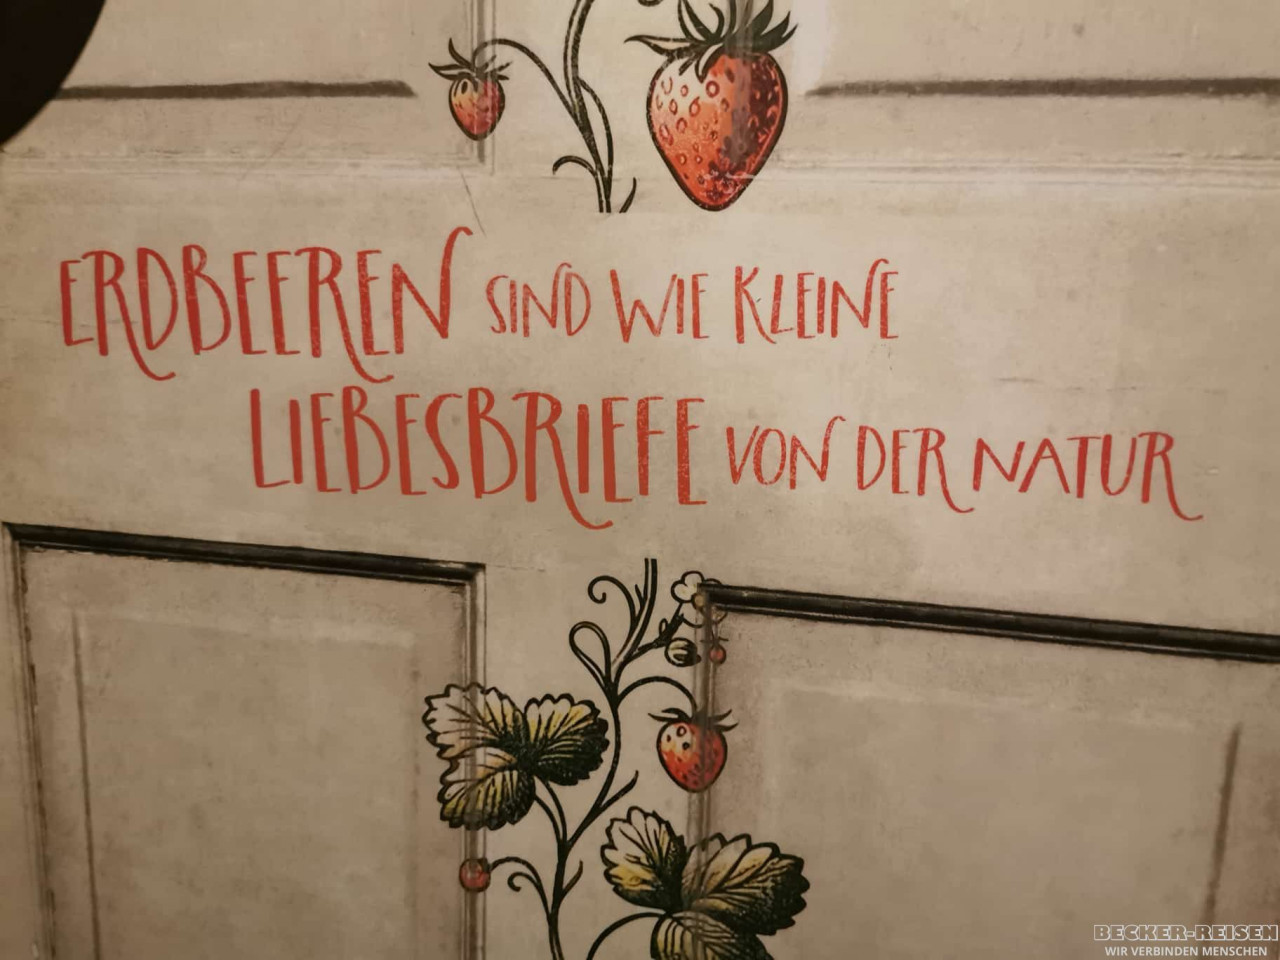 ERDBEEREN SIND WIE KLEINE
LIEBESBRIEFE VON DER NATUR
BECKER-REISEN
WIR VERBINDEN MENSCHEN